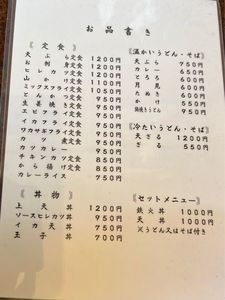 お品書き
《定食》
天ぷら定食 1200円
お刺身定食 1200円
ヒレカツ定食 1200円
山かけ定食 1000円
ミックスフライ定食 1000円
とんかつ定食 950円
生姜焼き定食 950円
エビフライ定食 950円
イカフライ定食 950円
ワカサギフライ定食 950円
カツカレー 950円
チキンカツ定食 850円
から揚げ定食 850円
カレーライス 750円
《丼物》
上天丼 1200円
ソースヒレカツ丼 950円
イカ天丼 750円
玉子丼 700円
《温かいうどん・そば》
天ぷら 950円
カレー 750円
とろろ 650円
月見 650円
たぬき 650円
かけ 550円
鍋焼きうどん 950円
《冷たいうどん・そば》
天ざる 950円
ざる 550円
《セットメニュー》
鉄火丼 1000円
天丼 1000円
※うどん又はそば付き